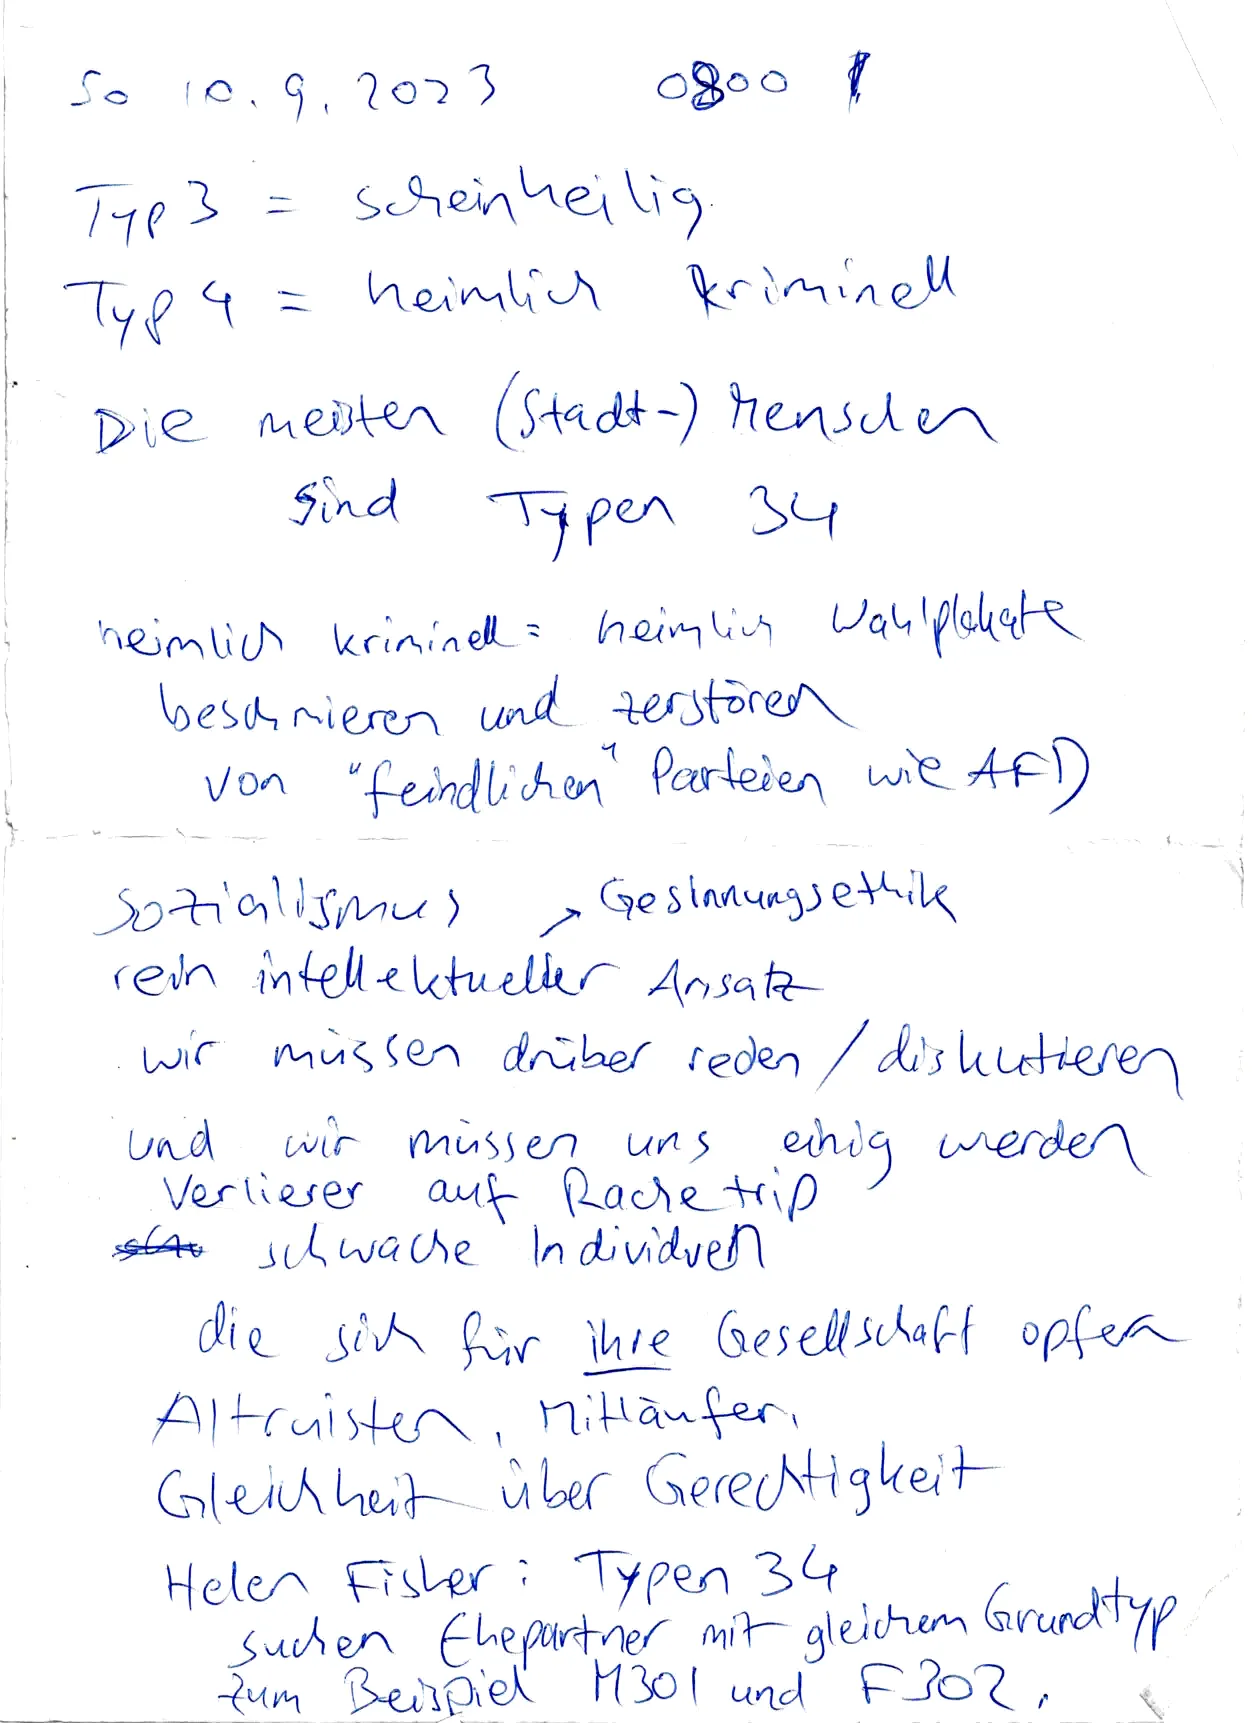 So 10.9.2023 0800
Typ 3 = scheinheilig
Typ 4 = heimlich kriminell
Die meisten (Stadt-) Menschen
sind Typen 34
heimlich kriminell = heimlich Wahlplakate
beschmieren und zerstören
von "feindlichen" Parteien wie AFD
Sozialismus → Gesinnungsethik
rein intellektueller Ansatz
wir müssen drüber reden / diskutieren
und wir müssen uns einig werden
Verlierer auf Rachetrip
schwache Individuen
die sich für ihre Gesellschaft opfern
Altruisten, Mitläufer,
Gleichheit über Gerechtigkeit
Helen Fisher: Typen 34
suchen Ehepartner mit gleichem Grundtyp
zum Beispiel M301 und F302.